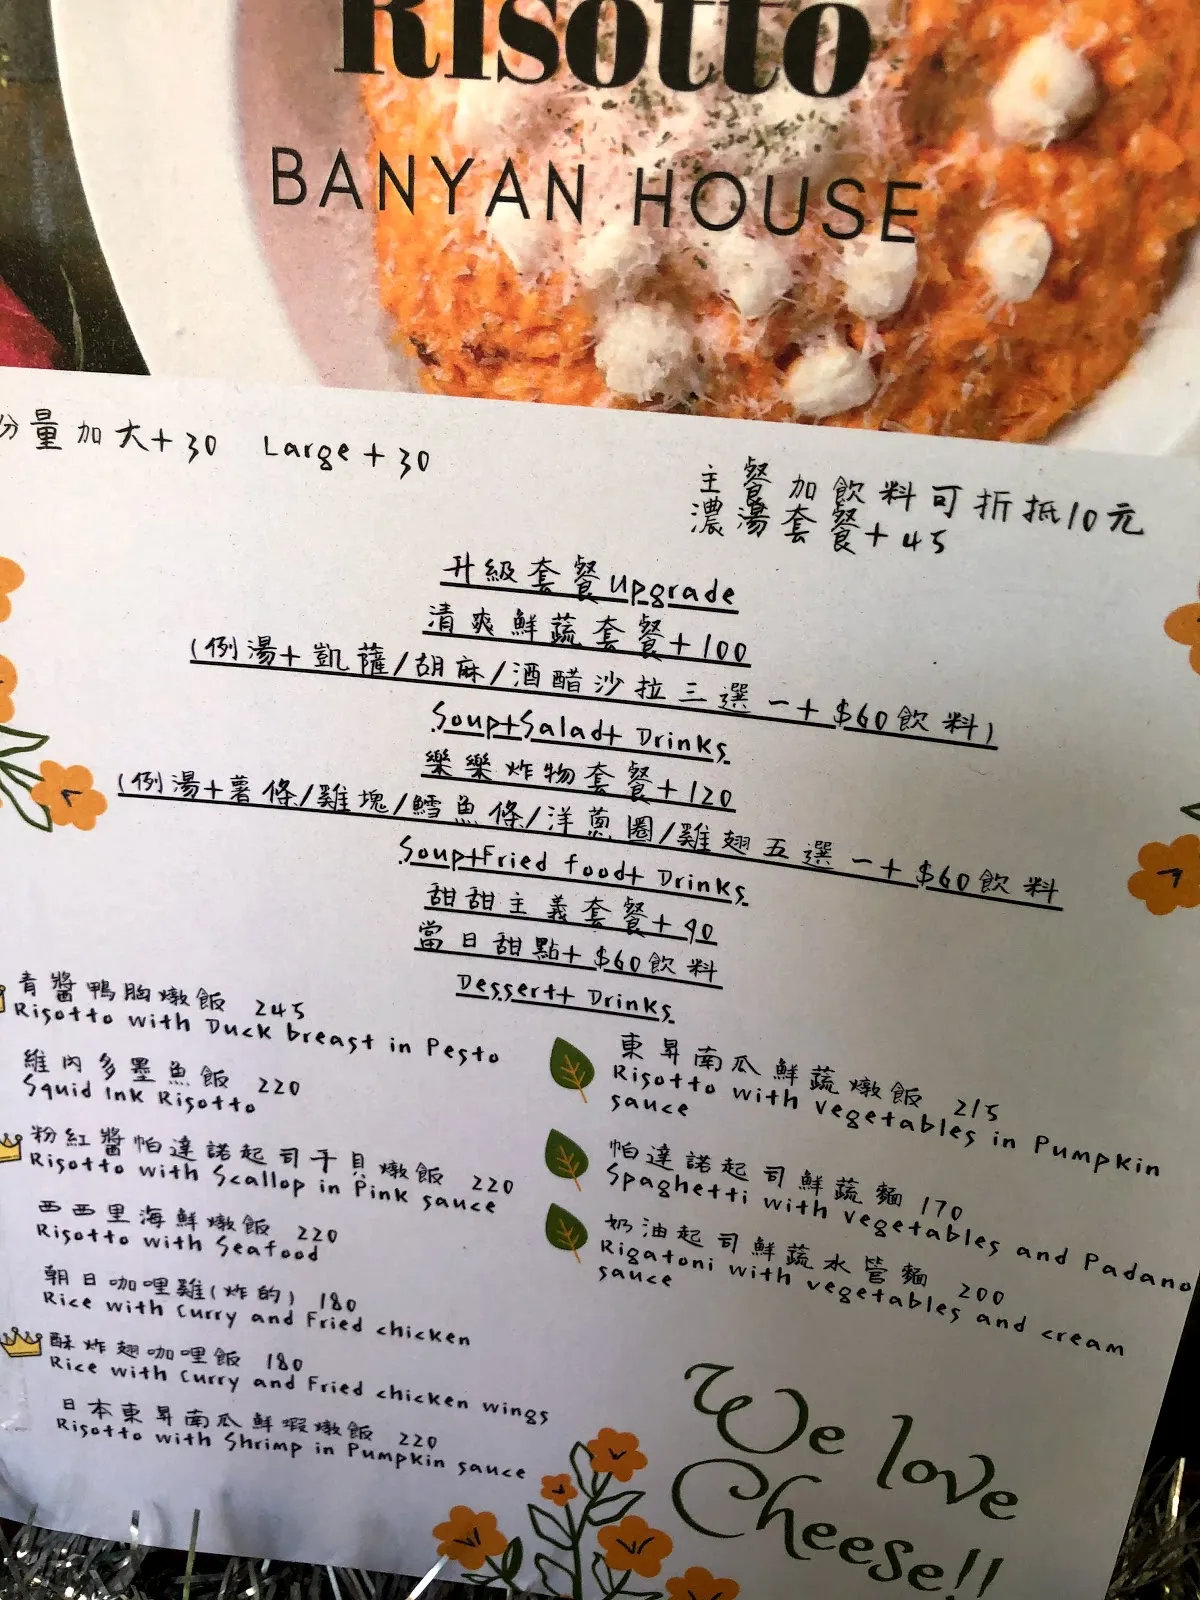 Risotto
BANYAN HOUSE
份量加大+30 Large+30
主餐加飲料可折抵10元
濃湯套餐+45
升級套餐Upgrade
清爽鮮蔬套餐+100
(例湯+凱薩/胡麻/酒醋沙拉三選一+$60飲料)
Soup+Salad+ Drinks
樂樂炸物套餐+120
(例湯+薯條/雞塊/鱈魚條/洋蔥圈/雞翅五選一+$60飲料
Soup+Fried food+ Drinks
甜甜主義套餐+90
當日甜點+$60飲料
Dessert+ Drinks
青醬鴨胸燉飯 245
Risotto with Duck breast in Pesto
維內多墨魚飯 220
Squid Ink Risotto
粉紅醬帕達諾起司干貝燉飯 220
Risotto with Scallop in Pink sauce
西西里海鮮燉飯 220
Risotto with Seafood
朝日咖哩雞(炸的) 180
Rice with Curry and Fried chicken
酥炸翅咖哩飯 180
Rice with Curry and Fried chicken wings
日本東昇南瓜鮮蝦燉飯 220
Risotto with Shrimp in Pumpkin sauce
東昇南瓜鮮蔬燉飯 215
Risotto with vegetables in Pumpkin
sauce
帕達諾起司鮮蔬麵 170
Spaghetti with vegetables and Padano
奶油起司鮮蔬水管麵 200
Rigatoni with vegetables and cream
sauce
We love
Cheese!!